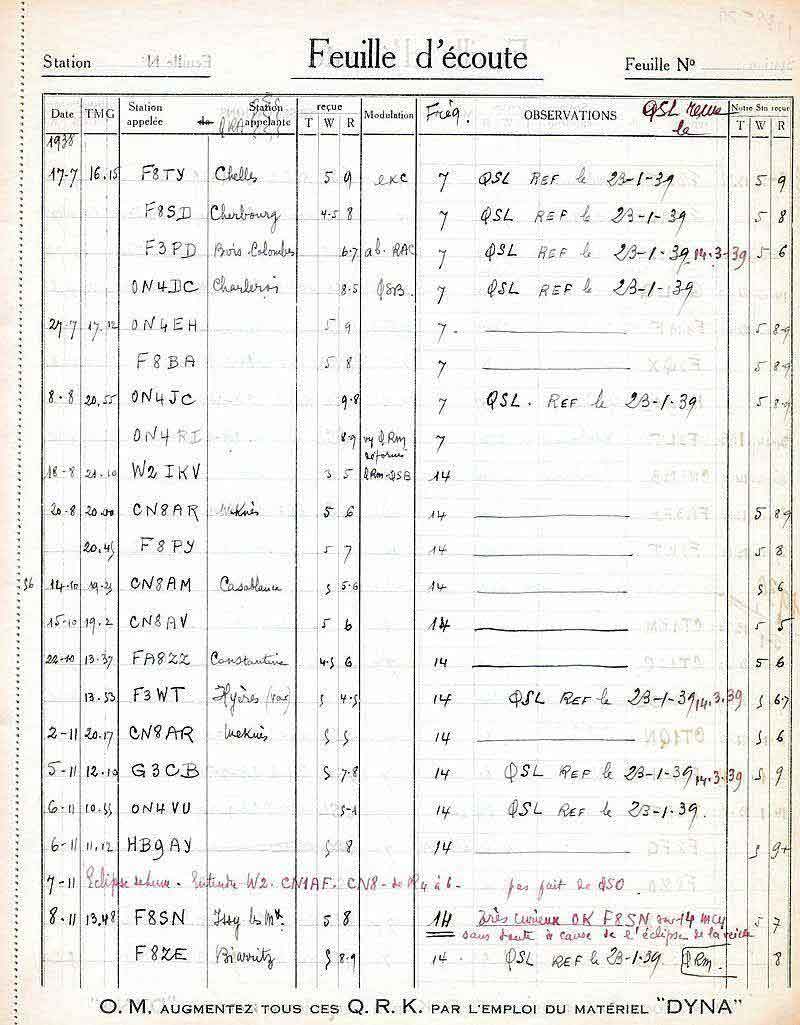 Feuille d'écoute
Station
Feuille Nº
Date TMG Station appelée de Station appelante QRA reçue T W R Modulation Fréq. OBSERVATIONS QSL reçue le Notre Stn reçue T W R
1938
17-7 16.15 F8TY Chelles 5 9 exc 7 QSL REF le 23-1-39 5 9
F8SD Cherbourg 4-5 8 7 QSL REF le 23-1-39 5 8
F3PD Bois Colombes 6-7 ab. RAC 7 QSL REF le 23-1-39 14-3-39 5 6
ON4DC Charleroi 8-5 QSB. 7 QSL REF le 23-1-39
27-7 17.12 ON4EH 5 9 7. 5 8-9
F8BA 5 8 7 5 8-9
8-8 20.55 ON4JC 9-8 7 QSL. REF le 23-1-39 5 8-9
ON4RI 8-9 vy QRM 7
18-8 21.10 W2IKV 3 5 QRM-QSB 14
20-8 20.00 CN8AR Meknès 5 6 14 5 8-9
20.45 F8PY 5 7 14 5 8
14-10 19-25 CN8AM Casablanca 5 5-6 14 5 6
15-10 19.2 CN8AV 5 6 14 5 5
22-10 13-37 FA8ZZ Constantine 4-5 6 14 5 6
13.53 F3WT Hyères (Var) 5 4-5 14 QSL REF le 23-1-39 14.3.39 5 6-7
2-11 20.17 CN8AR Meknès 5 5 14 5 6
5-11 12.10 G3CB 5 7-8 14 QSL REF le 23-1-39 14-3-39 5 9
6-11 10.55 ON4VU 14 QSL REF le 23-1-39.
6-11 11.12 HB9AY 5 8 14 5 9+
7-11 Eclipse de lune. Entendu W2. CN1AF. CN8 - de R4 à 6- pas fait de QSO.
8-11 13.48 F8SN Issy les Mx 5 8 14 Très curieux OK F8SN sur 14 mcy 5 7
sans doute à cause de l'éclipse de la veille
F8ZE Biarritz 5 8-9 14. QSL REF le 23-1-39. QRM. 8
O.M. AUGMENTEZ TOUS CES Q.R.K. PAR L'EMPLOI DU MATÉRIEL "DYNA"